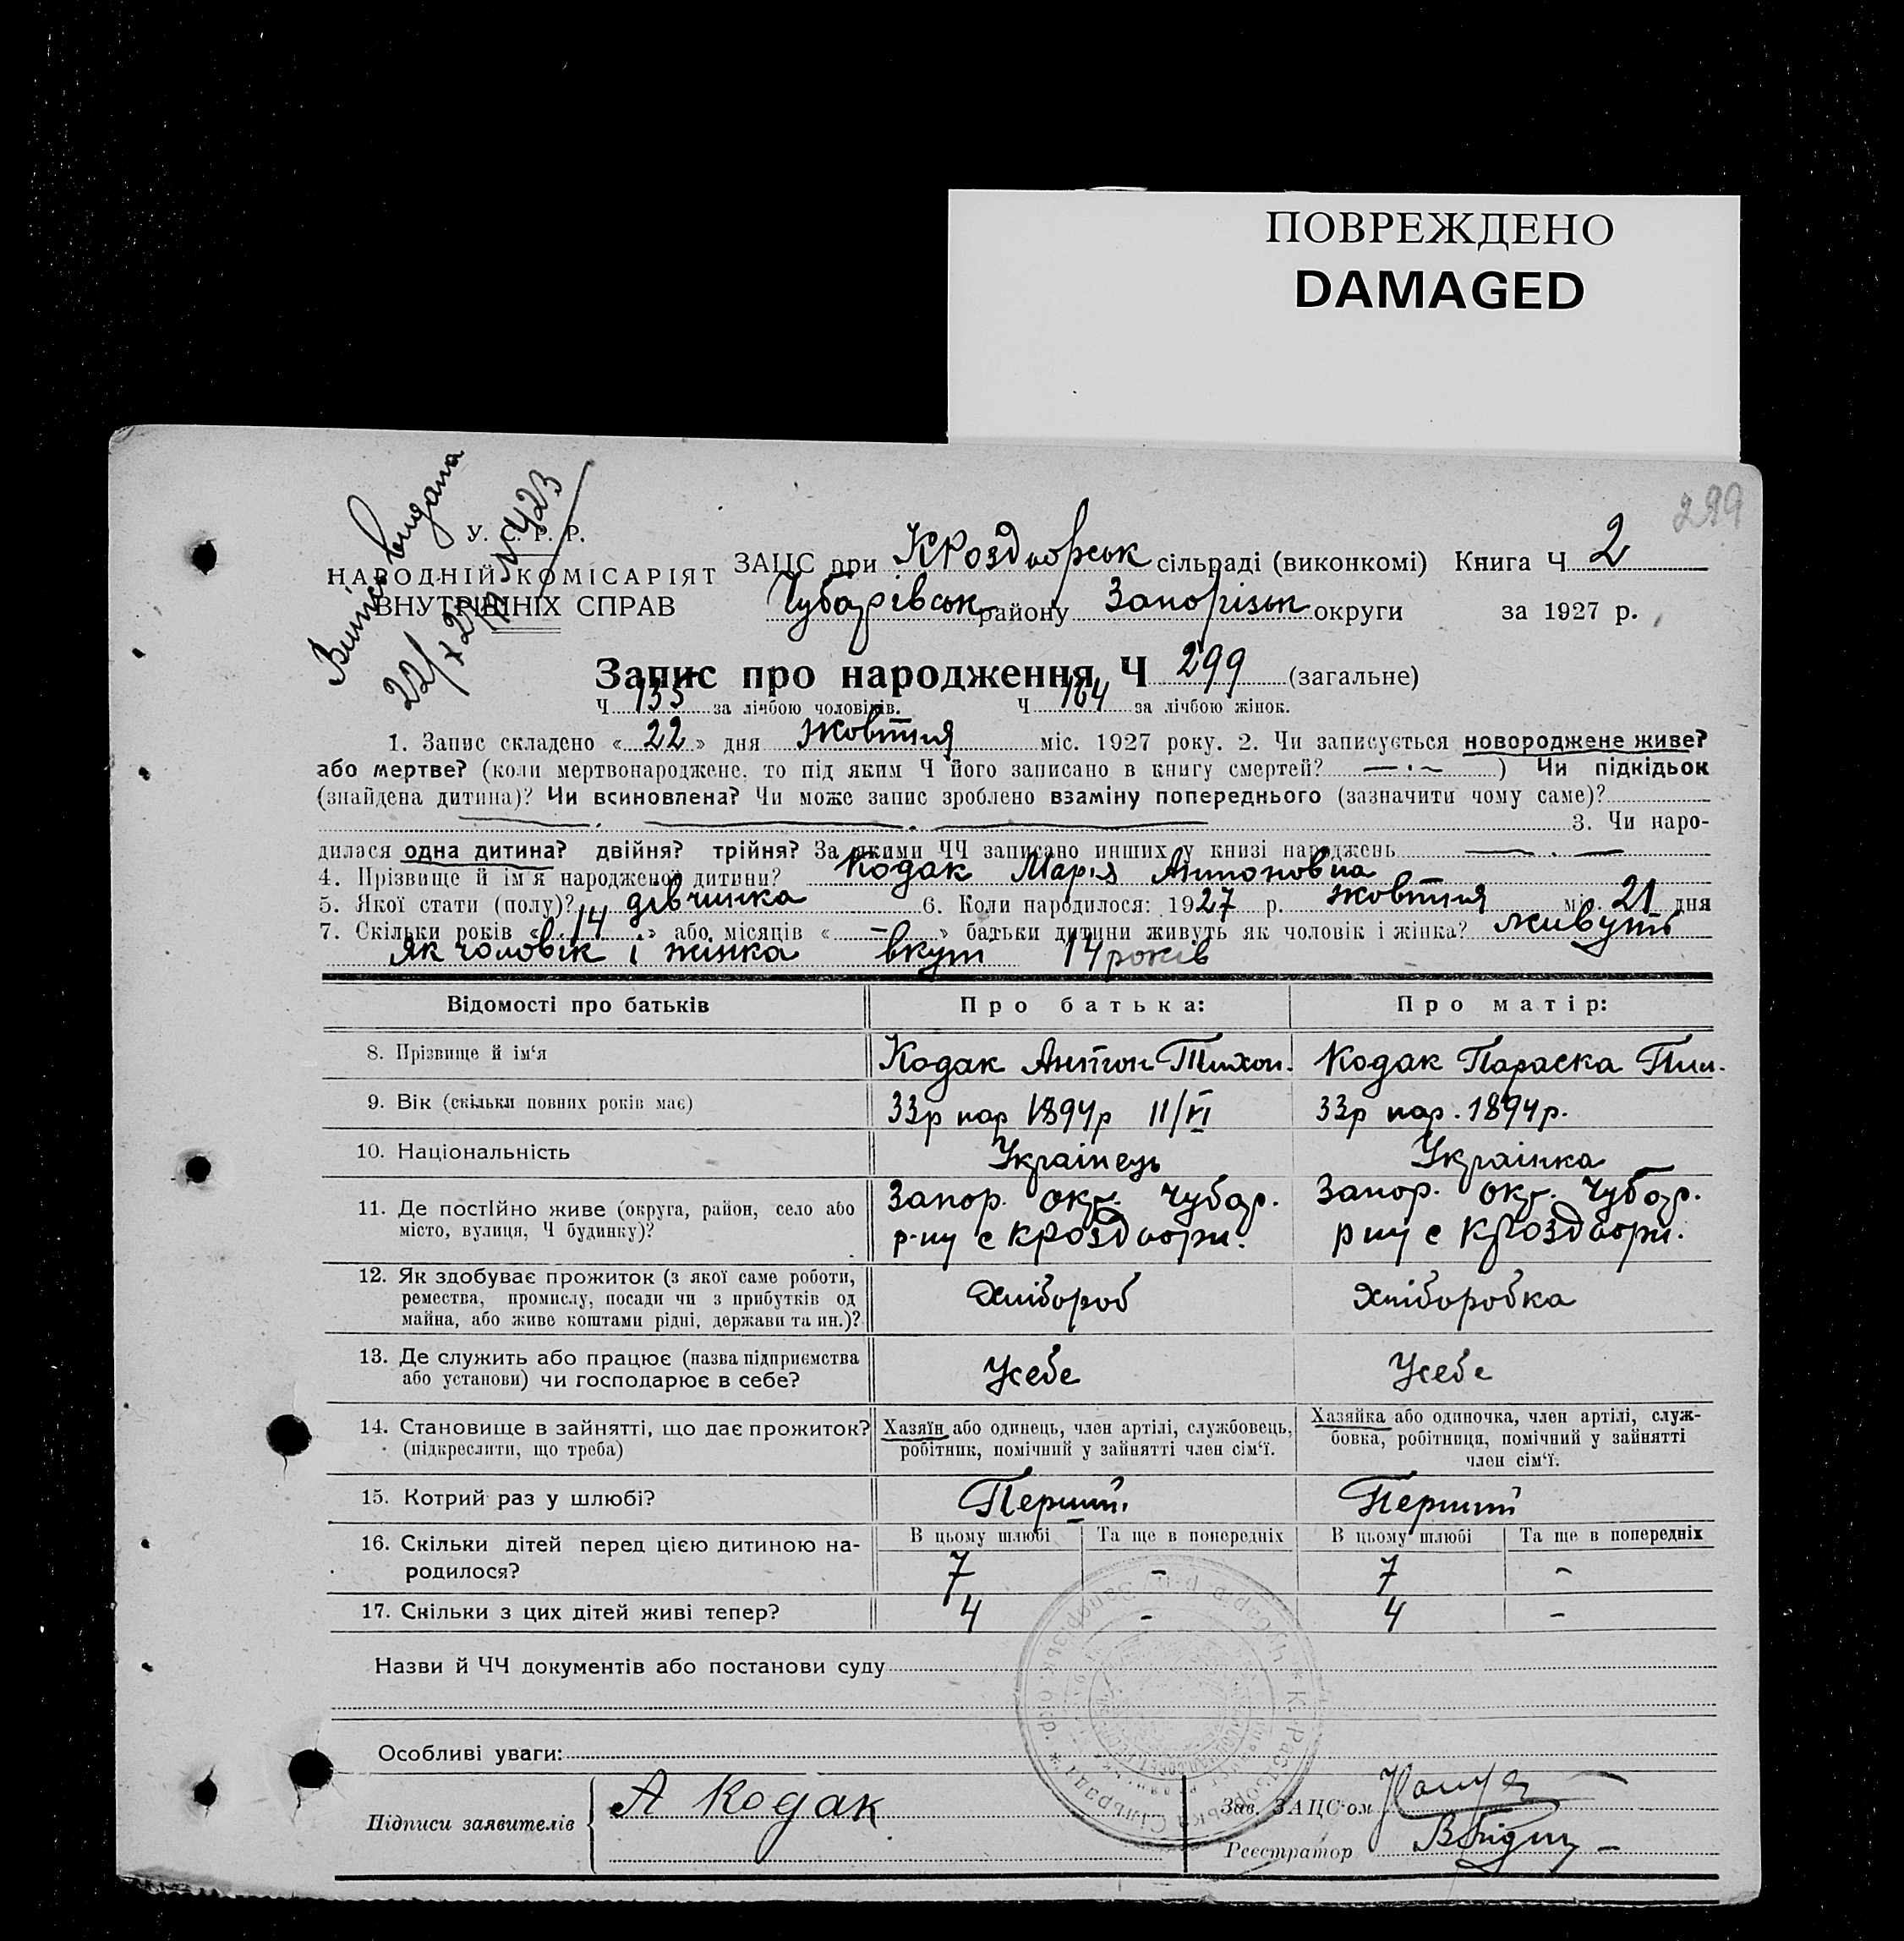 ПОВРЕЖДЕНО
DAMAGED
299
Випис видана
22/X 27 р N 423
У. С. Р. Р.
НАРОДНІЙ КОМІСАРІЯТ
ВНУТРІШНІХ СПРАВ
ЗАЦС при КРоздорськ сільраді (виконкомі) Книга Ч 2
Чубарівськ району Запоріськ округи за 1927 р.
Запис про народження Ч 299 (загальне)
Ч 135 за лічбою чоловіків. Ч 164 за лічбою жінок.
1. Запис складено «22» дня жовтня міс. 1927 року. 2. Чи записується новороджене живе?
або мертве? (коли мертвонароджене, то під яким Ч його записано в книгу смертей? — · ~ ) Чи підкідьок
(знайдена дитина)? Чи всиновлена? Чи може запис зроблено взаміну попереднього (зазначити чому саме)?
3. Чи наро-
дилася одна дитина? двійня? трійня? За якими ЧЧ записано инших у книзі народжень — . —
4. Прізвище й ім'я народженої дитини? Кодак Марія Антоновна
5. Якої стати (полу)? дівчинка 6. Коли народилося: 1927 р. жовтня міс. 21 дня
7. Скільки років «14» або місяців «—» батьки дитини живуть як чоловік і жінка? живуть
як чоловік і жінка вкуті 14 років
Відомості про батьків Про батька: Про матір:
8. Прізвище й ім'я Кодак Антон Тихон. Кодак Параска Пил.
9. Вік (скільки повних років має) 33р нар 1894р 11/VI 33р нар. 1894р.
10. Національність Українець Українка
11. Де постійно живе (округа, район, село або
місто, вулиця, Ч будинку)?
Запор. окр. Чубар.
р-ну с КРоздори.
Запор. окр. Чубар.
рну с КРоздори.
12. Як здобуває прожиток (з якої саме роботи,
ремества, промислу, посади чи з прибутків од
майна, або живе коштами рідні, держави та ин.)?
Хлібороб Хліборобка
13. Де служить або працює (назва підприємства
або установи) чи господарює в себе?
Усебе Усебе
14. Становище в зайнятті, що дає прожиток?
(підкреслити, що треба)
Хазяїн або одинець, член артілі, службовець,
робітник, помічний у зайнятті член сім'ї.
Хазяйка або одиночка, член артілі, служ-
бовка, робітниця, помічний у зайнятті
член сім'ї.
15. Котрий раз у шлюбі? Перший. Перший
16. Скільки дітей перед цією дитиною на-
родилося?
В цьому шлюбі Та ще в попередніх В цьому шлюбі Та ще в попередніх
7 - 7 -
17. Скільки з цих дітей живі тепер? 4 - 4 -
Назви й ЧЧ документів або постанови суду
Особливі уваги:
Підписи заявителів А Кодак
Зав. ЗАЦС'ом
Реєстратор